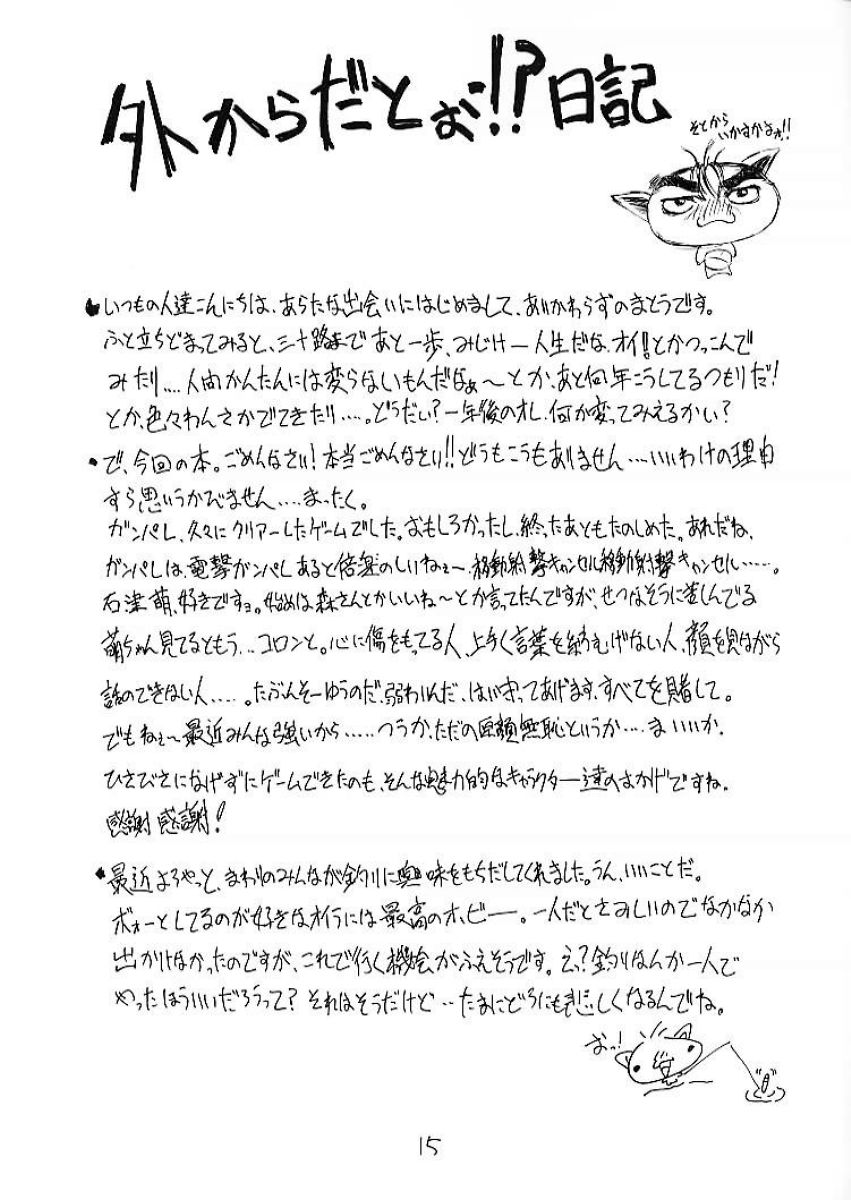 外からだとぉ!?日記
そとから
いかすかよぉ!!
●いつもの人達こんにちは、あらたな出会いにはじめまして、あいかわらずのまとうです。
ふと立ちどまってみると、三十路まであと一歩、みじけー人生だな、オイ!とかつっこんで
みたり....人間かんたんには変らないもんだなぁ〜とか、あと何年こうしてるつもりだ!
とか、色々わんさかでてきたり....。どうだい?一年後のオレ、何か変ってみえるかい?
・で、今回の本。ごめんなさい!本当ごめんなさい!!どうもこうもありません...いいわけの理由
すら思いうかびません....まったく。
ガンパレ、久々にクリアーしたゲームでした。おもしろかったし、終ったあともたのしめた。あれだね、
ガンパレは、電撃ガンパレあると倍楽のしいねぇ〜、移動射撃キャンセル移動射撃キャンセル.....。
石津萌、好きですョ。始めは森さんとかいいね〜とか言ってたんですが、せつなそうに苦しんでる
萌ちゃん見てるともう...コロンと。心に傷をもってる人、上手く言葉をつむげない人、顔を見ながら
話のできない人.....。たぶんそーゆうのだ、弱いんだ、はい守ってあげます、すべてを賭して。
でもねぇ〜最近みんな強いから.....つうか、ただの厚顔無恥というか....まいいか、
ひさびさになげずにゲームできたのも、そんな魅力的なキャラクター達のおかげですね。
感謝感謝!
・最近よろやっと、まわりのみんなが釣りに興味をもちだしてくれました。うん、いいことだ。
ボォーとしてるのが好きなオイラには最高のホビー。一人だとさみしいのでなかなか
出かけなかったのですが、これで行く機会がふえそうです。え?釣りなんか一人で
やったほういいだろうって?それはそうだけど..たまにどうにも悲しくなるんでね。
おっ!
15